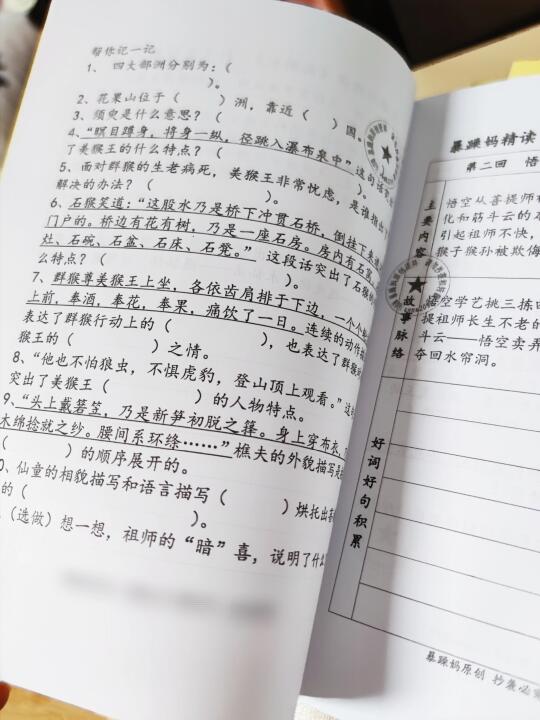 帮你记一记
1、 四大部洲分别为：（
）。
2、花果山位于（ ）洲，靠近（ ）国。
3、须臾是什么意思？（
4、“瞑目蹲身，将身一纵，径跳入瀑布泉中”这句话
了美猴王的什么特点？（
5、面对群猴的生老病死，美猴王非常忧虑，是谁指出
解决的办法？（ ）。
6、石猴笑道：“这股水乃是桥下冲贯石桥，倒挂下来
门户的。桥边有花有树，乃是一座石房。房内有石
灶、石碗、石盆、石床、石凳。”这段话突出了石猴
么特点？（ ）。
7、群猴尊美猴王上坐，各依齿肩排于下边，一个个
上前，奉酒，奉花，奉果，痛饮了一日。连续的动作
表达了群猴行动上的（ ），也表达了群猴
猴王的（ ）之情。
8、“他也不怕狼虫，不惧虎豹，登山顶上观看。”这
突出了美猴王（ ）的人物特点。
9、“头上戴箬笠，乃是新笋初脱之箨。身上穿布衣，
木绵捻就之纱。腰间系环绦……”樵夫的外貌描写
（ ）的顺序展开的。
0、仙童的相貌描写和语言描写（ ）烘托出
的（ ）。
（选做）想一想，祖师的“暗”喜，说明了什
暴躁妈精读
第二回 悟
主要内容
悟空从菩提师
化和筋斗云的
引起祖师不快，
猴子猴孙被欺
故事脉络
悟空学艺挑三拣四
提祖师长生不老的
斗云——悟空卖弄
夺回水帘洞。
好词好句积累
暴躁妈原创 抄袭必